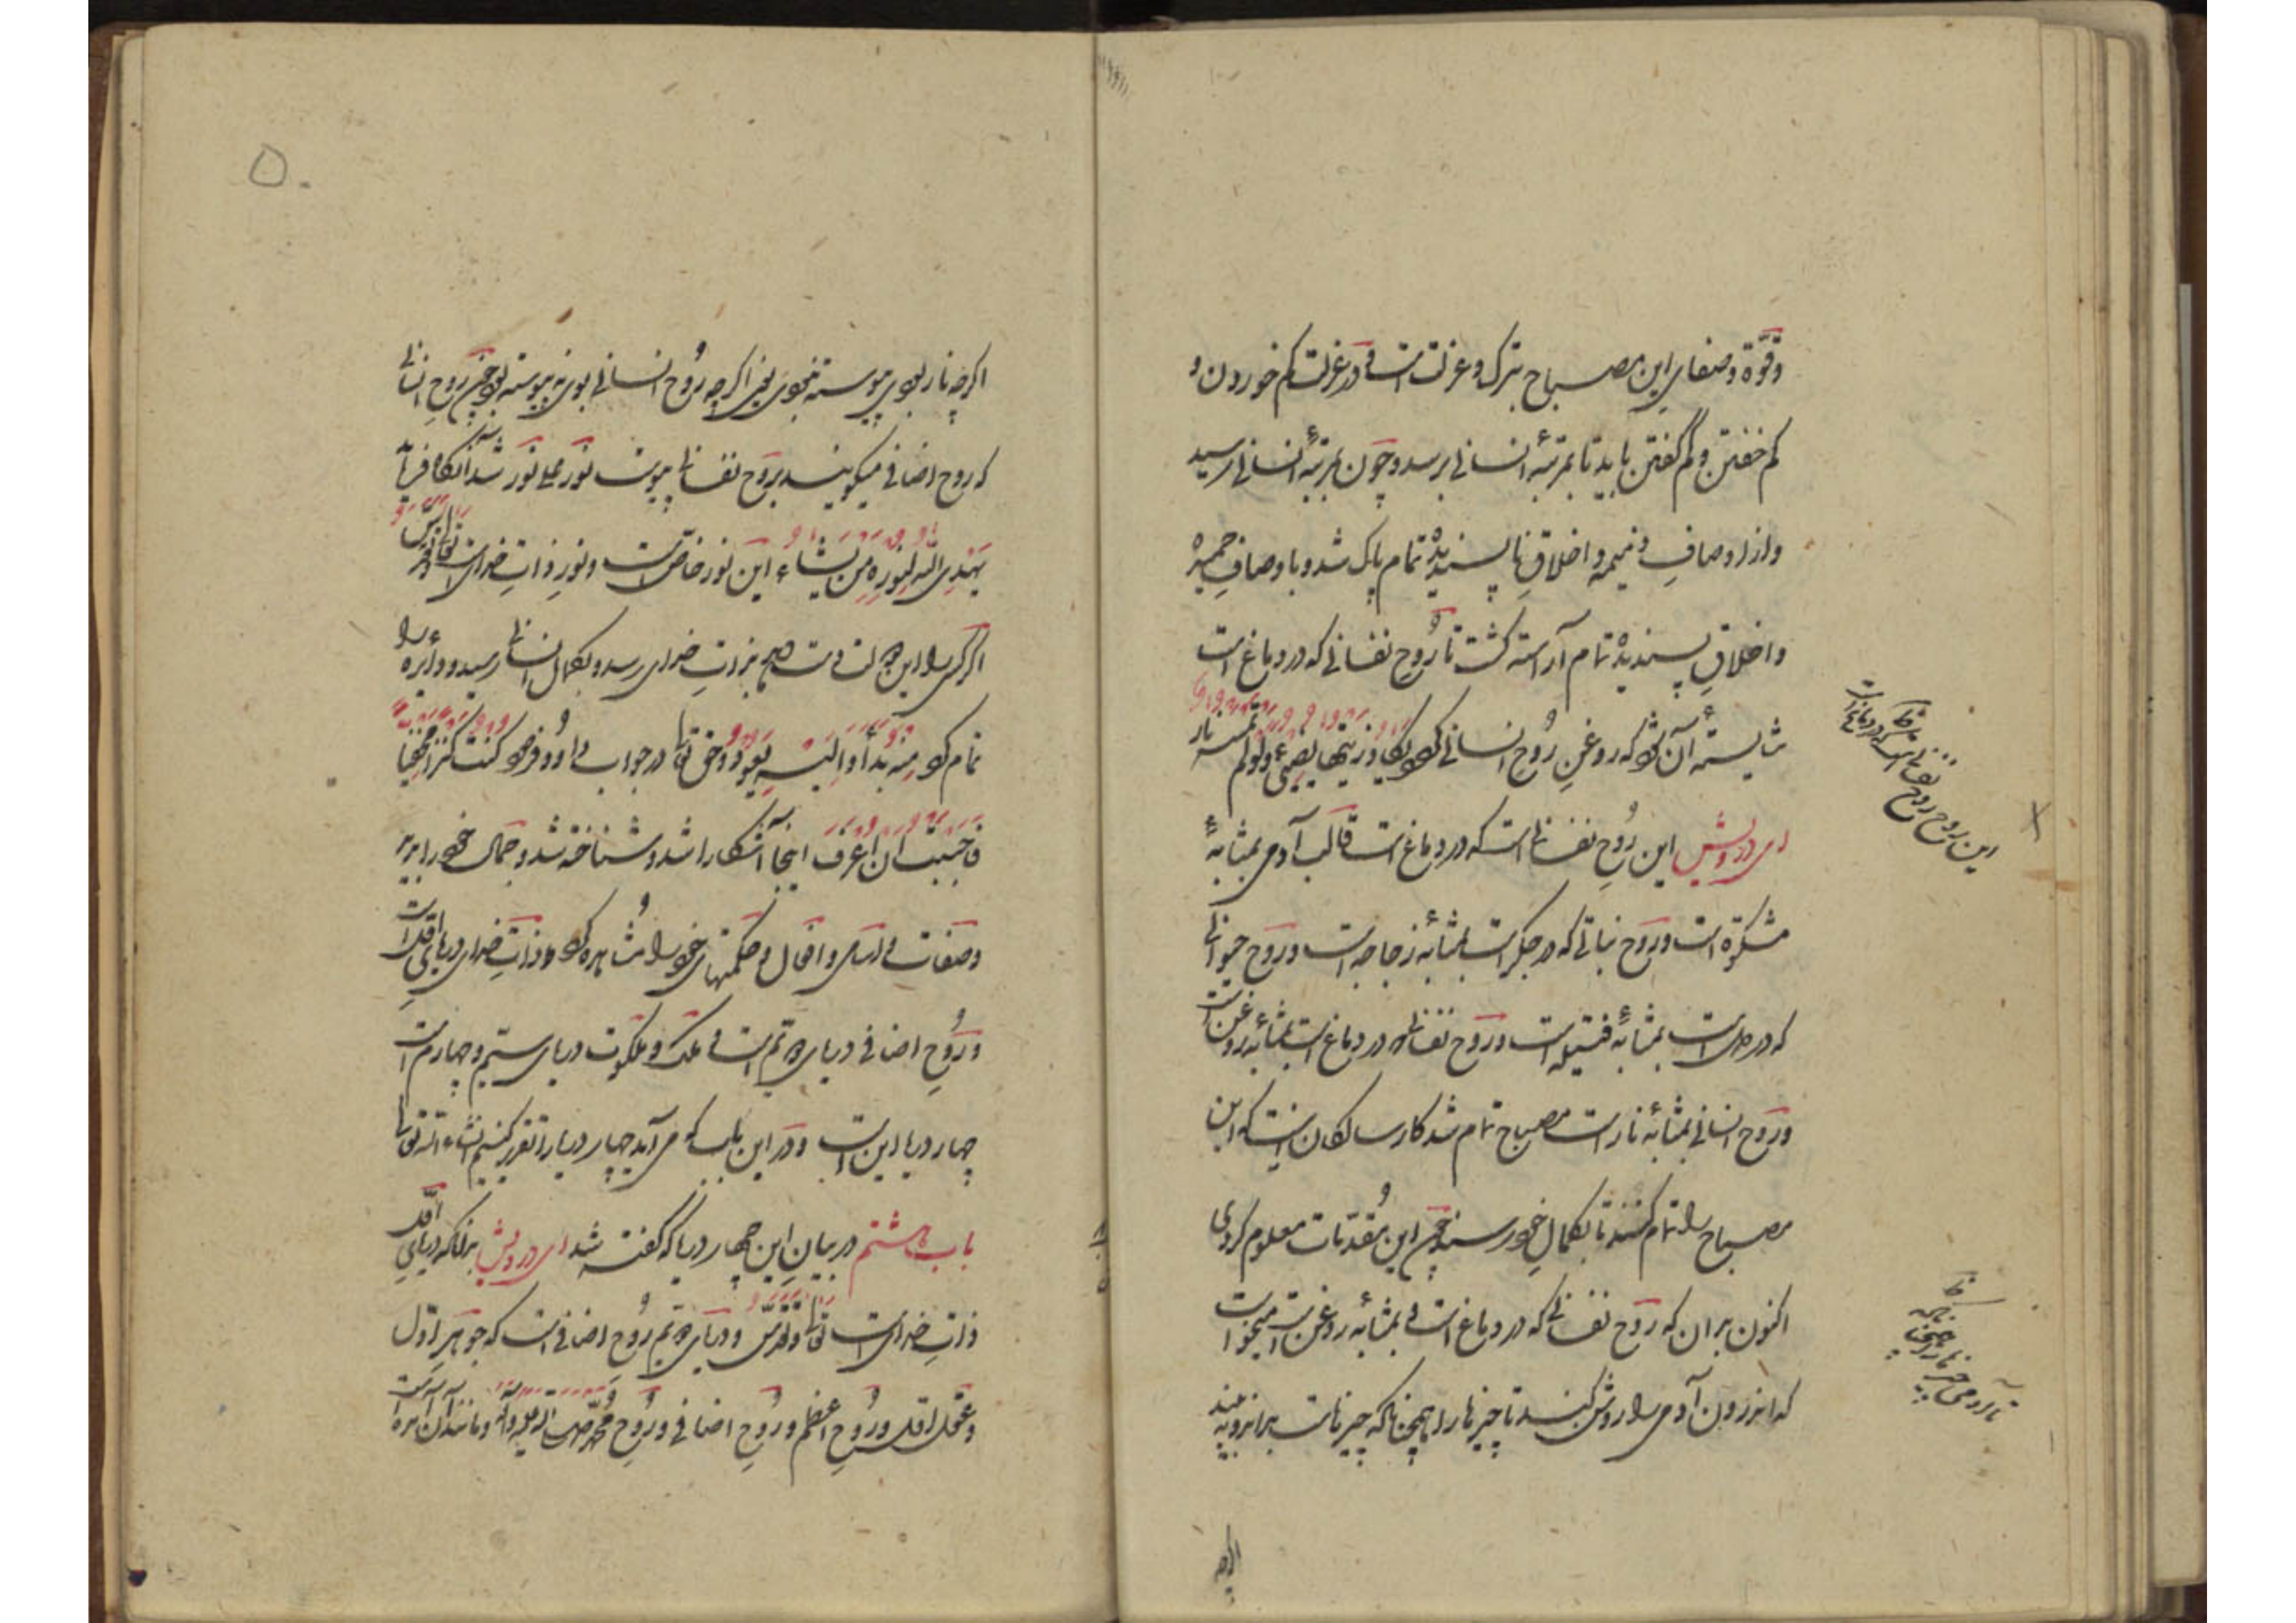 وقوّة وصفای این مصباح بترک و عزلت است و در عزلت کم خوردن و
کم خفتن و کم گفتن باید تا بمرتبهٔ انسانی برسد و چون بمرتبهٔ انسانی رسید
و از اوصافِ ذمیمه و اخلاقِ ناپسندیده تمام پاک شد و باوصافِ حمیده
و اخلاقِ پسندیده تمام آراسته گشت تا رُوحِ نفسانی که در دماغ است
شایستهٔ آن شود که روغنِ رُوحِ انسانی یکاد زیتها یضیئ ولو لم تمسسه نار
ای درویش این رُوحِ نفسانی است که در دماغ است قالب آدمی بمثابهٔ
مشکوٰة است و رَوح نباتی که در جگر است بمثابهٔ زجاجه است و رَوح حیوانی
که در دل است بمثابهٔ فتیله است و رَوح نفسانی که در دماغ است بمثابهٔ روغن است
و رَوح انسانی بمثابهٔ نار است مصباح تمام شد کار سالکان اینست که این
مصباح را تمام کنند تا بکمالِ خود رسند چون این مُقدّمات معلوم کردی
اکنون بدان که رَوح نفسانی که در دماغ است و بمثابهٔ روغن است میخواست
که اندرون آدمی را روشن کند تا چیزها را همچنانکه چیزهاست بداند و به بیند
این روح روح نفسانی است که در دماغ است
تا آدمی چیزها را همچنانکه
اگرچه
۵۰
اگرچه نار بودی پیوسته نبودی یعنی اگرچه رُوح انسانی بودی نه پیوسته بود چون روحِ انسانی
که روح اضافی میگویند بروح نفسانی پیوست نور علی نور شد آنگاه فرمود
یهدی الله لنوره من یشاء این نور خاصّ است و نورِ ذاتِ خدای است تعالی و تقدس
اگر کسی را این دست دهد بذاتِ خدای رسد و بکمال انسانی رسید و دائره را
تمام کرد منه بدأ و الیه یعود و حق تعالی در جواب داوود فرمود کنت کنزا مخفیا
فاحببت ان اعرف اینجا آشکارا شد و شناخته شد و جمال خود را بدید
و صفات و اسامی و افعال و حکمتهای خود را مُشاهده کرد و ذاتِ خدای دریای اوّل است
و رُوحِ اضافی دریای دوّم است و ملک و ملکوت دریای سیّم و چهارم است
چهار دریا این است و در این باب که می آید چهار دریا را تقریر کنیم انشاء الله تعالی
باب هشتم در بیانِ این چهار دریا که گفته شد ای درویش بدانکه دریای اوّل
ذاتِ خدای است تعالی و تقدّس و دریای دوّم رُوحِ اضافی است که جوهر اوّل
و عقل اوّل و رُوحِ اعظم و رُوحِ اضافی و رُوحِ مُحمّد صلی الله علیه و آله و مانند آن آمده است